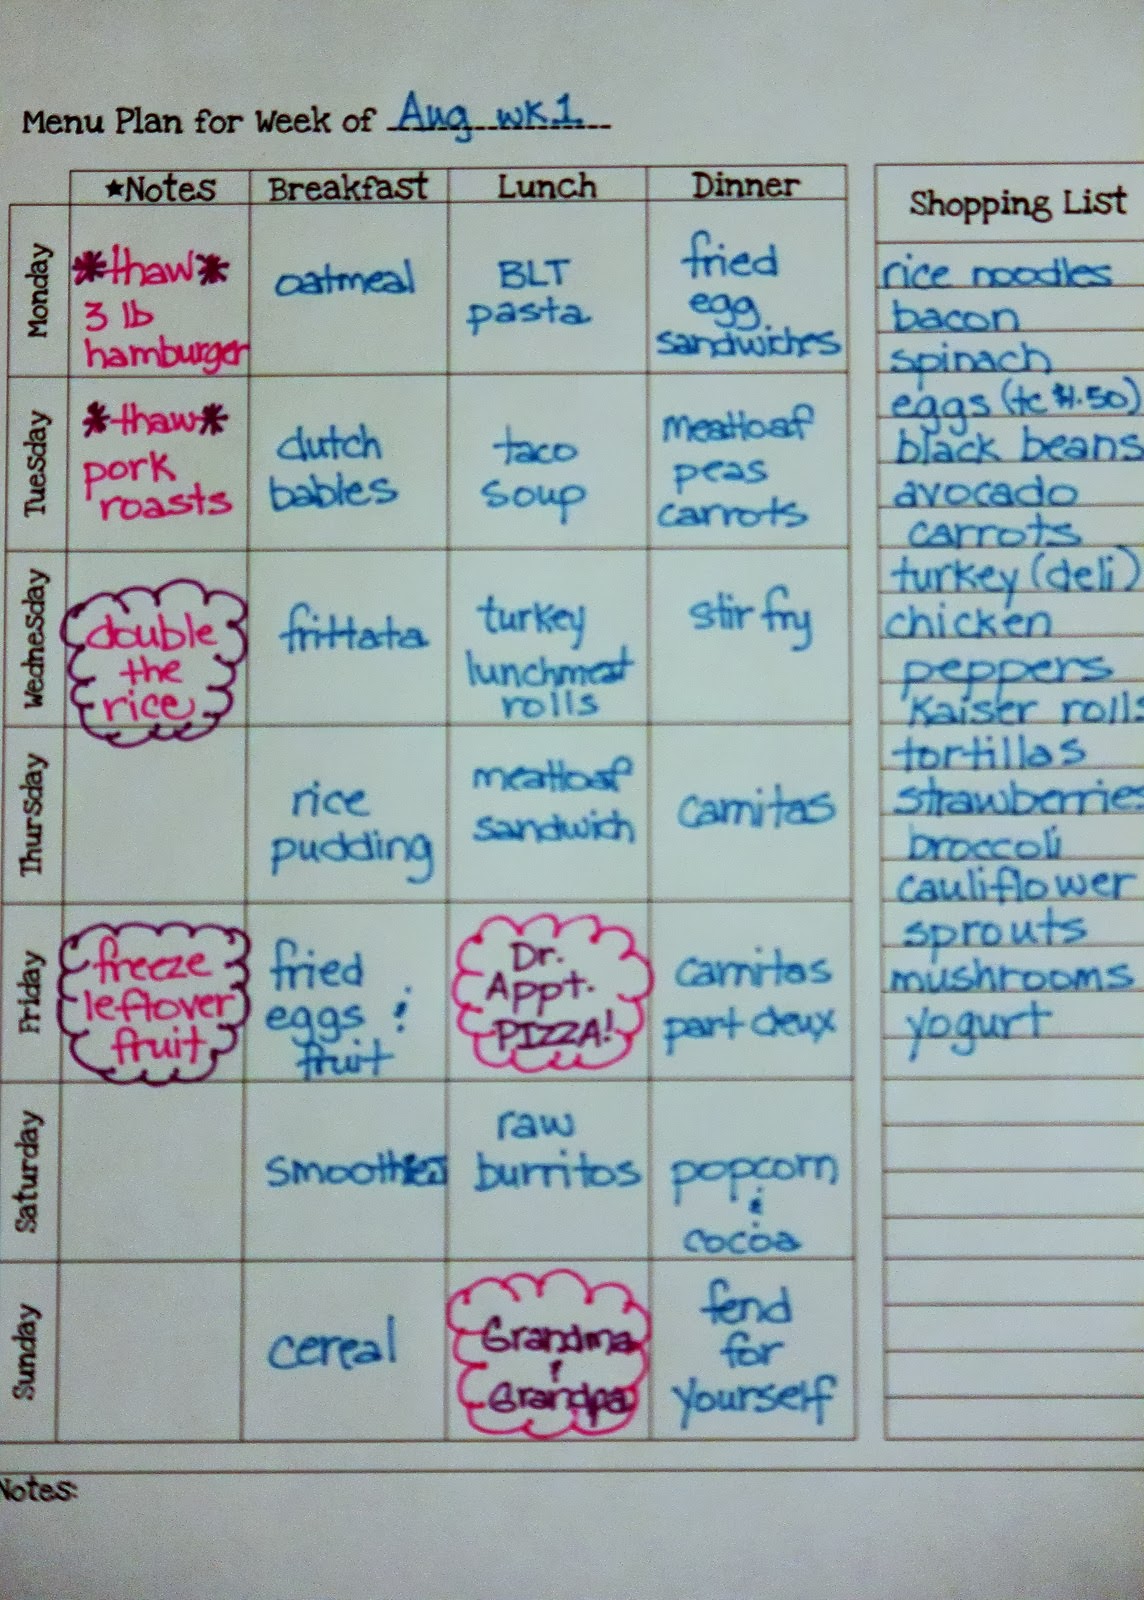 Menu Plan for Week of Aug wk 1
★Notes Breakfast Lunch Dinner
Monday
*thaw*
3 lb
hamburger
oatmeal
BLT
pasta
fried
egg
sandwiches
Tuesday
*thaw*
pork
roasts
dutch
babies
taco
soup
meatloaf
peas
carrots
Wednesday
double
the
rice
frittata
turkey
lunchmeat
rolls
stir fry
Thursday
rice
pudding
meatloaf
sandwich
carnitas
Friday
freeze
leftover
fruit
fried
eggs &
fruit
Dr.
Appt.
PIZZA!
carnitas
part deux
Saturday
smoothies
raw
burritos
popcorn
&
cocoa
Sunday
cereal
Grandma
&
Grandpa
fend
for
yourself
Shopping List
rice noodles
bacon
spinach
eggs (tc $1.50)
black beans
avocado
carrots
turkey (deli)
chicken
peppers
Kaiser rolls
tortillas
strawberries
broccoli
cauliflower
sprouts
mushrooms
yogurt
Notes: